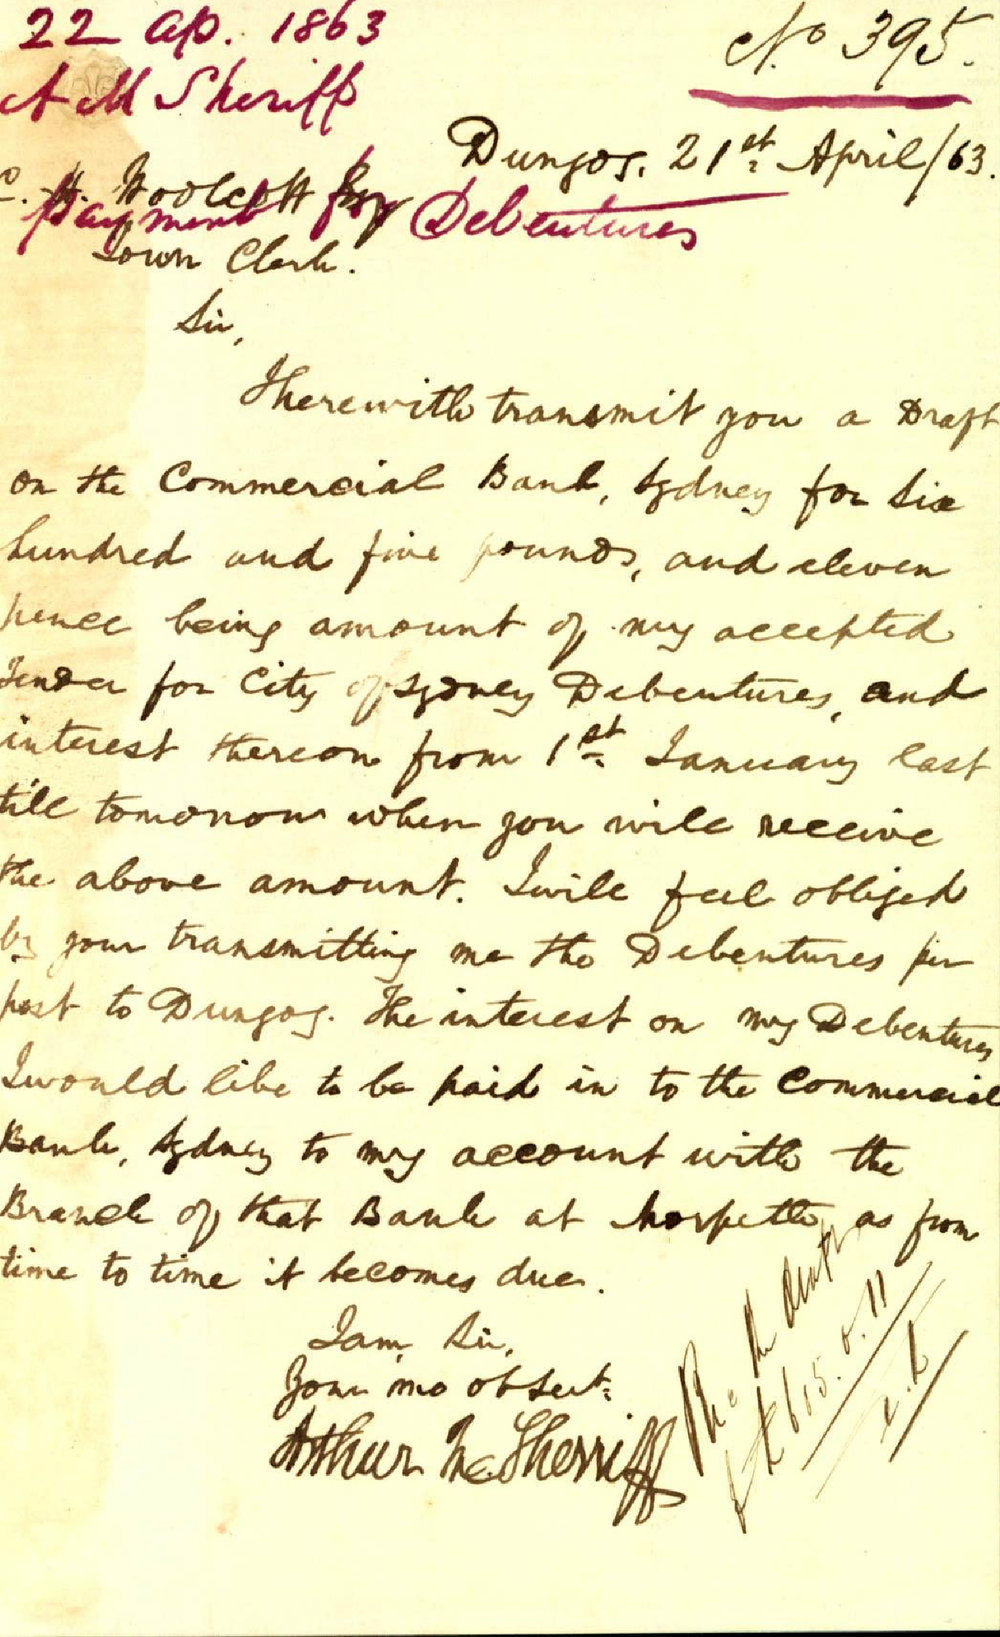 22 Ap. 1863
No 395.
A M Sheriff
Dungog, 21st April/63.
C. H. Woolcott Esq
Payment for Debentures
Town Clerk.
Sir,
I herewith transmit you a Draft
on the Commercial Bank, Sydney for Six
hundred and five pounds, and eleven
pence being amount of my accepted
Tender for City of Sydney Debentures, and
interest thereon from 1st January last
till tomorrow when you will receive
the above amount. I will feel obliged
by your transmitting me the Debentures per
post to Dungog. The interest on my Debentures
I would like to be paid in to the Commercial
Bank, Sydney to my account with the
Branch of that Bank at Morpeth, as from
time to time it becomes due.
I am, Sir,
Your mo obsert:
Arthur McSherriff
Rec the draft
£605.0.11